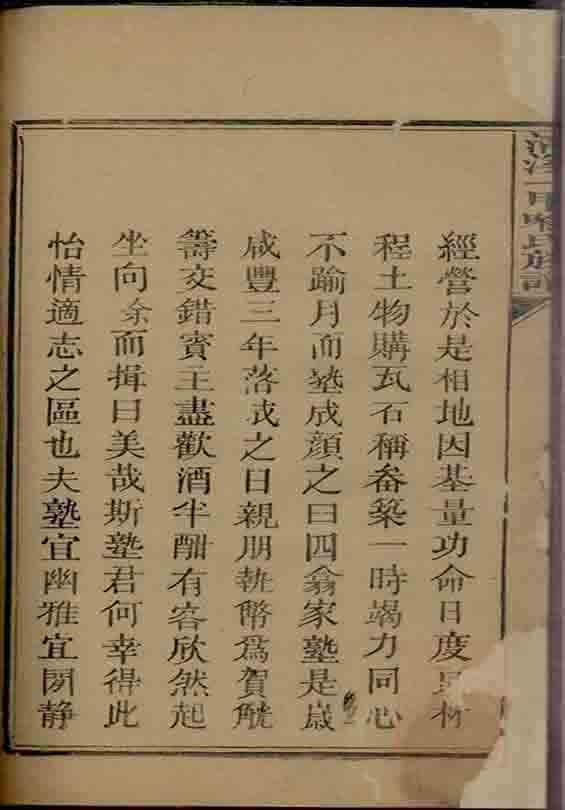 經營於是相地因基量功命日度其材
程土物購瓦石稱畚築一時竭力同心
不踰月而塾成顏之曰四翕家塾是歲
咸豐三年落成之日親朋執幣爲賀觥
籌交錯賓主盡歡酒半酣有客欣然起
坐向余而揖曰美哉斯塾君何幸得此
怡情適志之區也夫塾宜幽雅宜閒靜
氏族譜